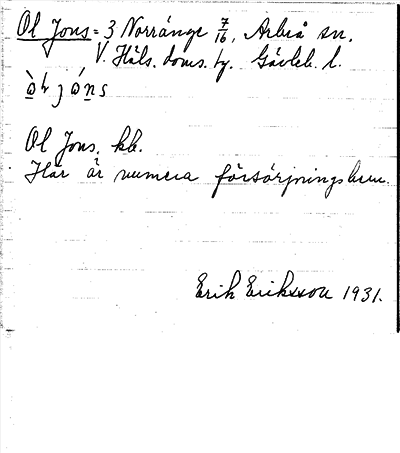 Ol Jons = 3 Norränge 7/16, Arbrå sn.
V. Häls. doms. tg. Gävleb. l.
Ol Jons. kb.
Här är numera försörjningshem.
Erik Eriksson 1931.